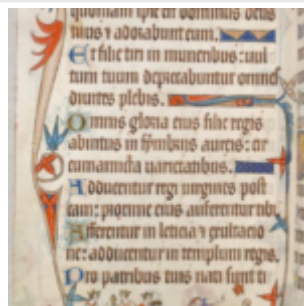 quoniam ipse est dominus deus
tuus ⁊ adorabunt eum.
Et filie tiri in muneribus: uul
tum tuum deprecabuntur omnes
diuites plebis.
Omnis gloria eius filie regis
abintus in fimbriis aureis: cir
cumamicta uarietatibus.
Adducentur regi uirgines post
eam: proxime eius afferentur tibi.
Afferentur in leticia ⁊ exultacio
ne: adducentur in templum regis.
Pro patribus tuis nati sunt ti